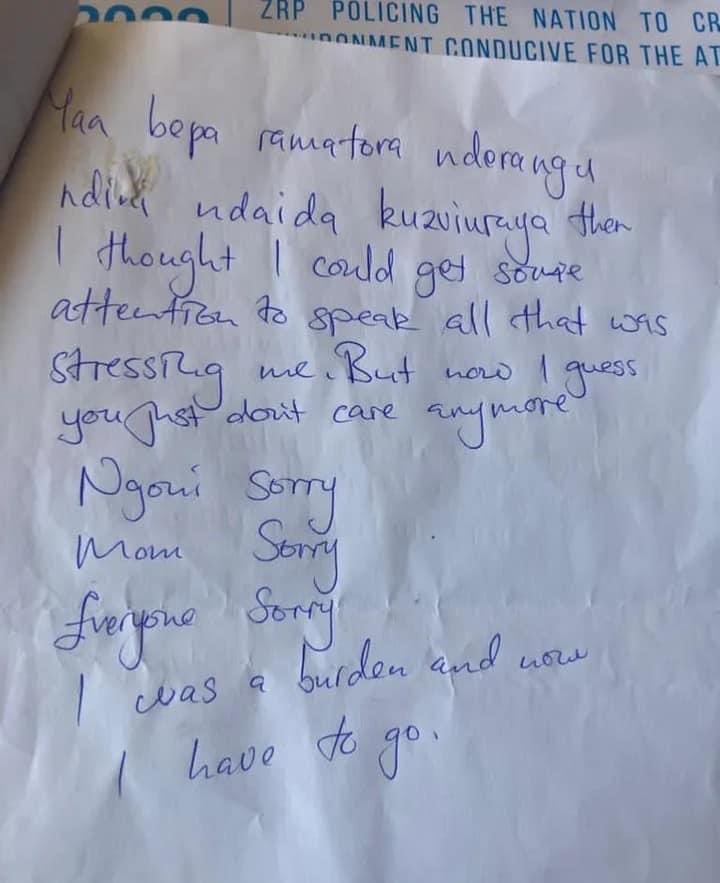 ZRP POLICING THE NATION TO CR
CONDUCIVE FOR THE AT
Yaa bepa ramatora nderangu
ndini ndaida kuzviuraya then
I thought I could get some
attention to speak all that was
stressing me. But now I guess
you just don't care anymore
Ngoni Sorry
Mom Sorry
Everyone Sorry
I was a burden and now
I have to go.